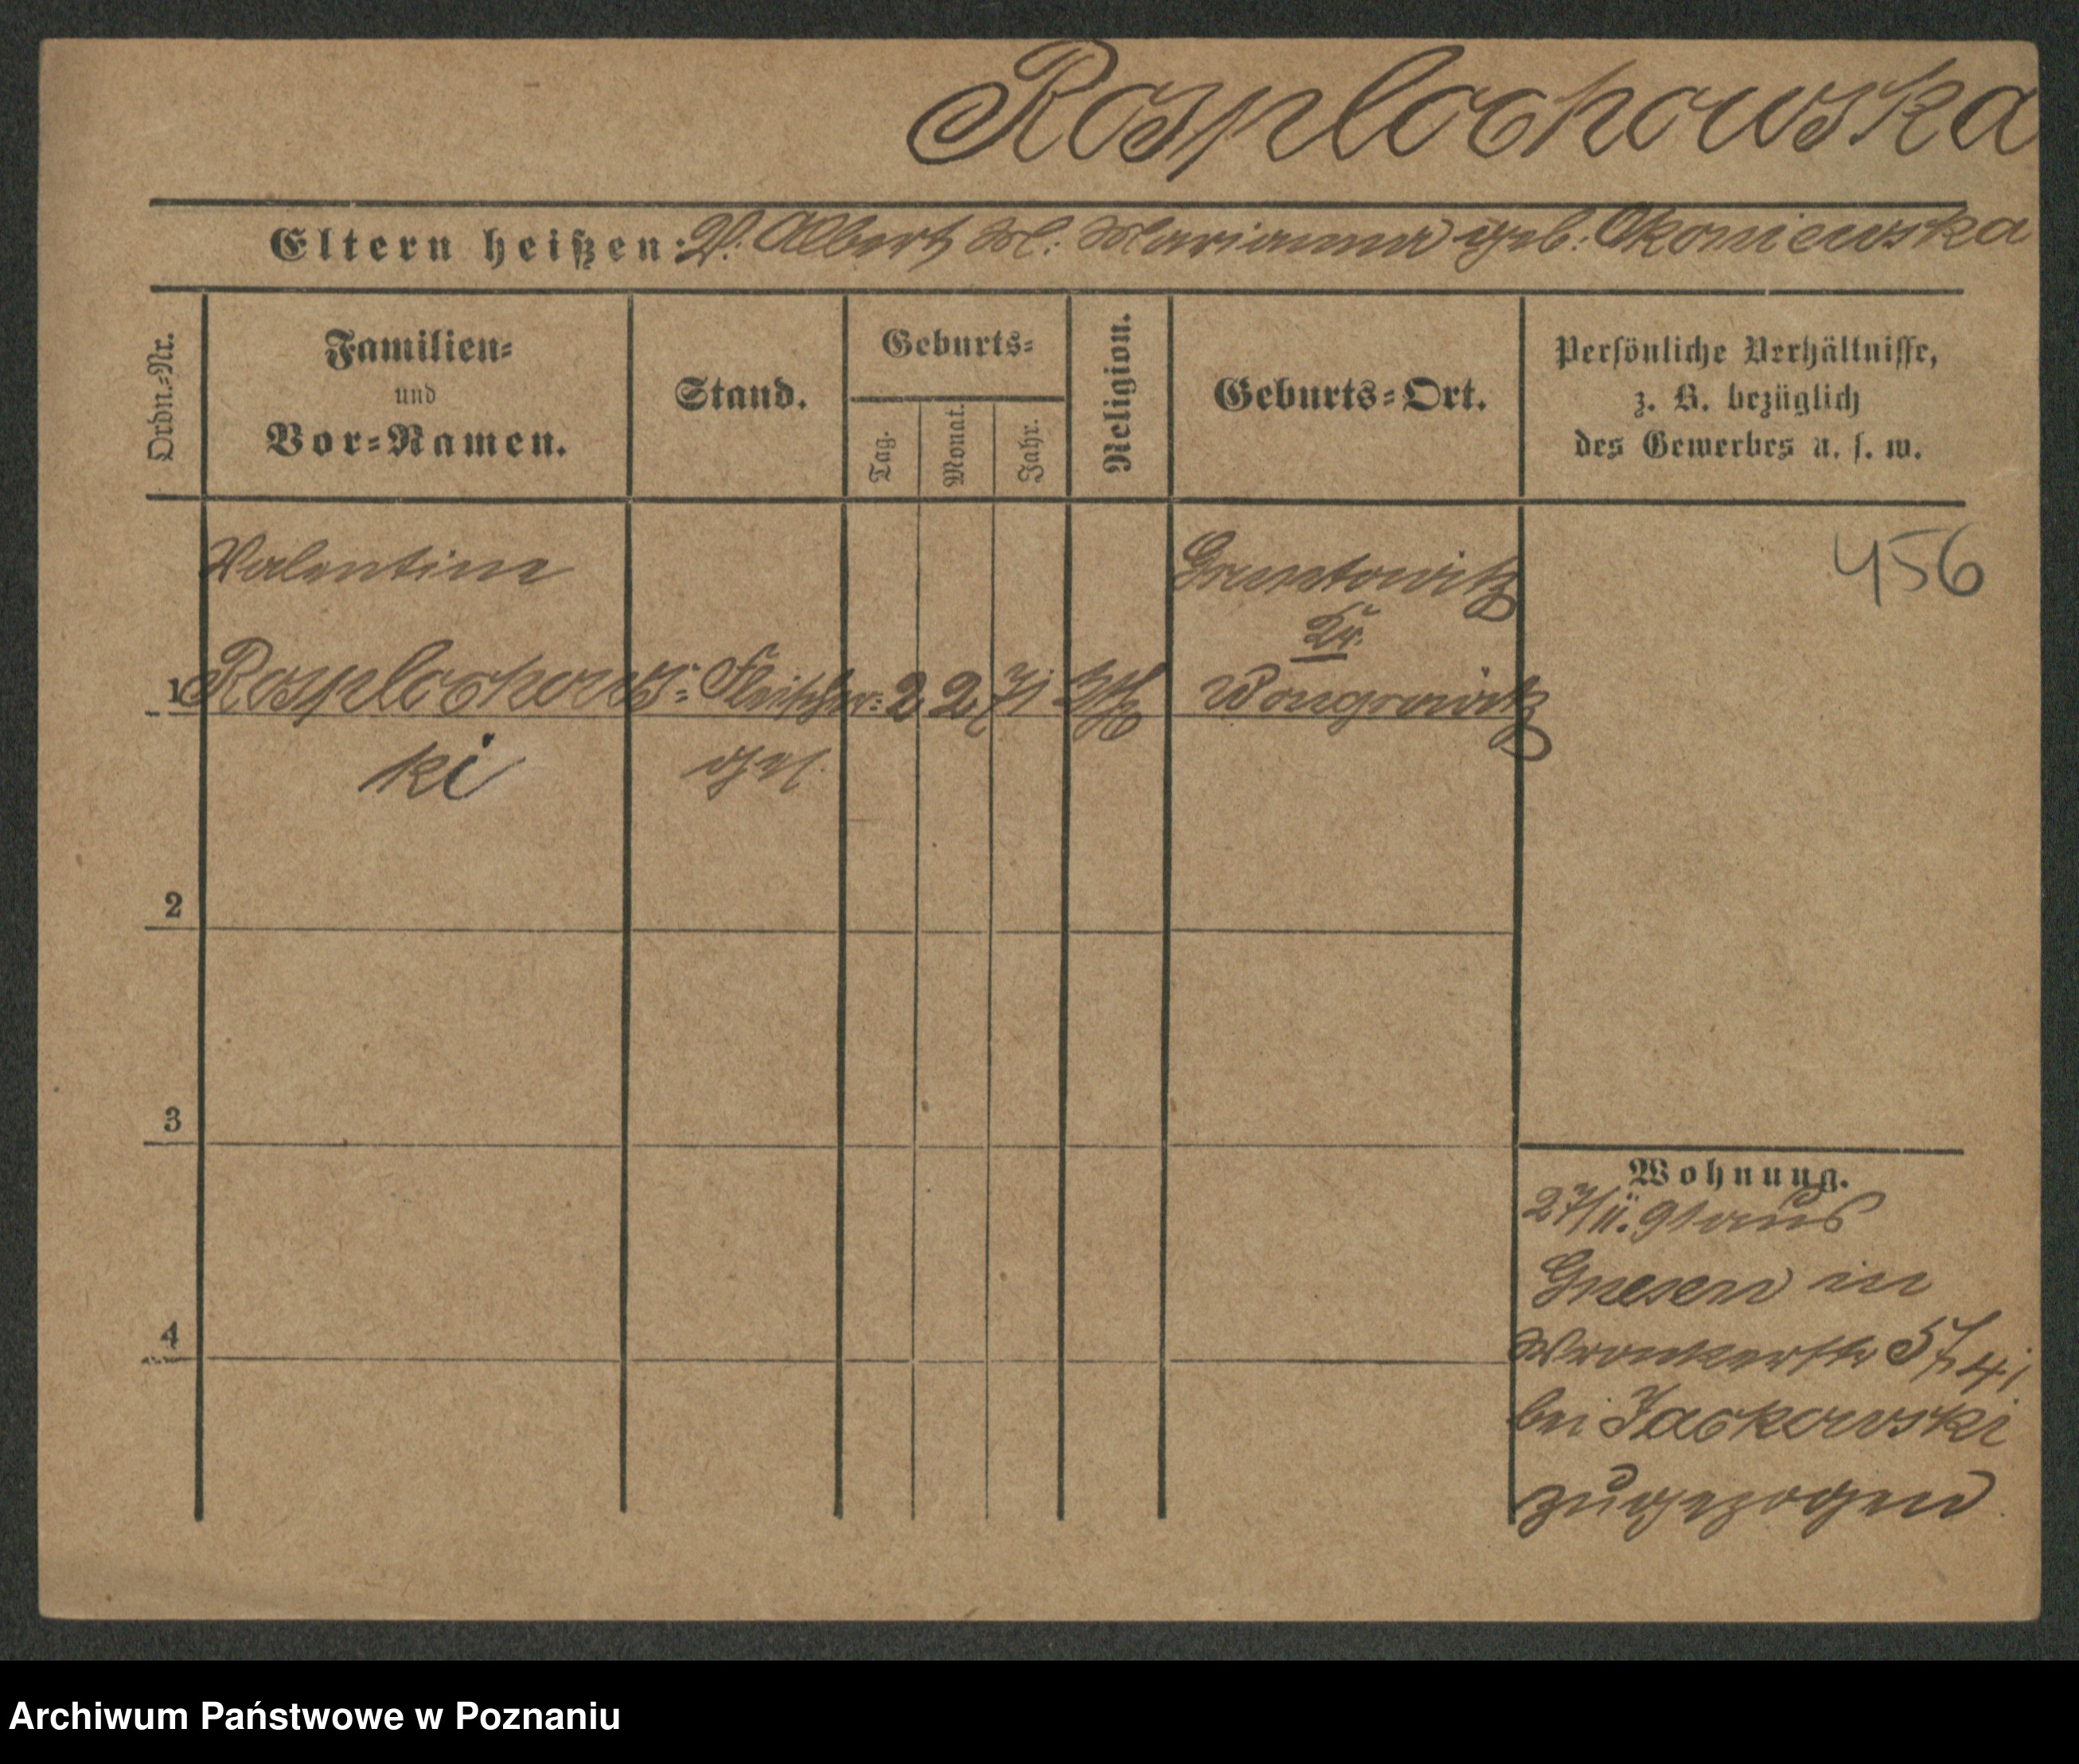 Rosplochowska
Eltern heißen: V. Albert M. Marianna geb. Okoniewska
Ordn.-Nr.
Familien-
und
Vor-Namen.
Stand.
Geburts-
Tag.
Monat.
Jahr.
Religion.
Geburts-Ort.
Persönliche Verhältnisse,
z. B. bezüglich
des Gewerbes u. s. w.
456
Valentin
Gruntowitz
Kr.
1 Rosplochows- Fleischer- 2 2 71 Wongrowitz
ki
2
3
4
Wohnung.
27/11. 91 aus
Gnesen in
Wronkerstr
bei Jackowski
zugezogen
Archiwum Państwowe w Poznaniu